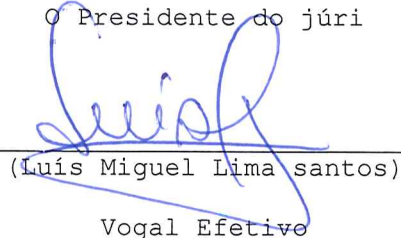 O Presidente do júri
Luís
(Luís Miguel Lima santos)
Vogal Efetivo